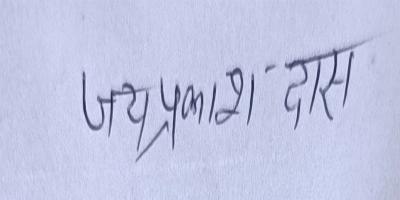 जयप्रकाश दास